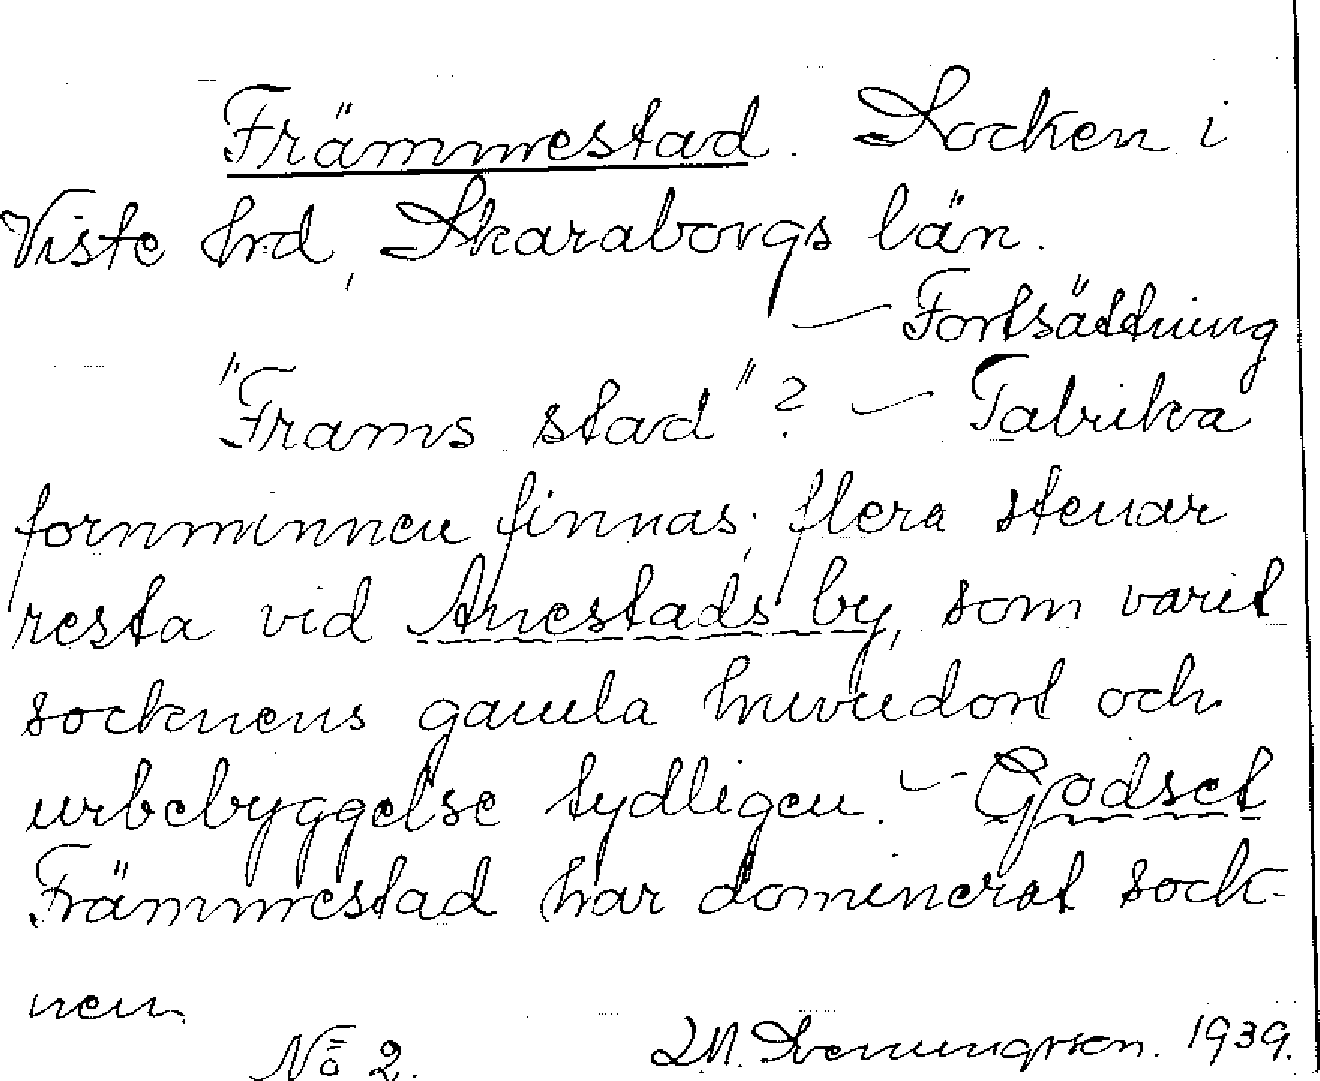 Främmestad. Socken i
Viste hrd, Skaraborgs län.
— Fortsättning
"Frams stad"? — Talrika
fornminnen finnas; flera stenar
resta vid Anestads by, som varit
socknens gamla huvudort och
urbebyggelse tydligen. — Godset
Främmestad har dominerat sock-
nen.
No 2. 1939.